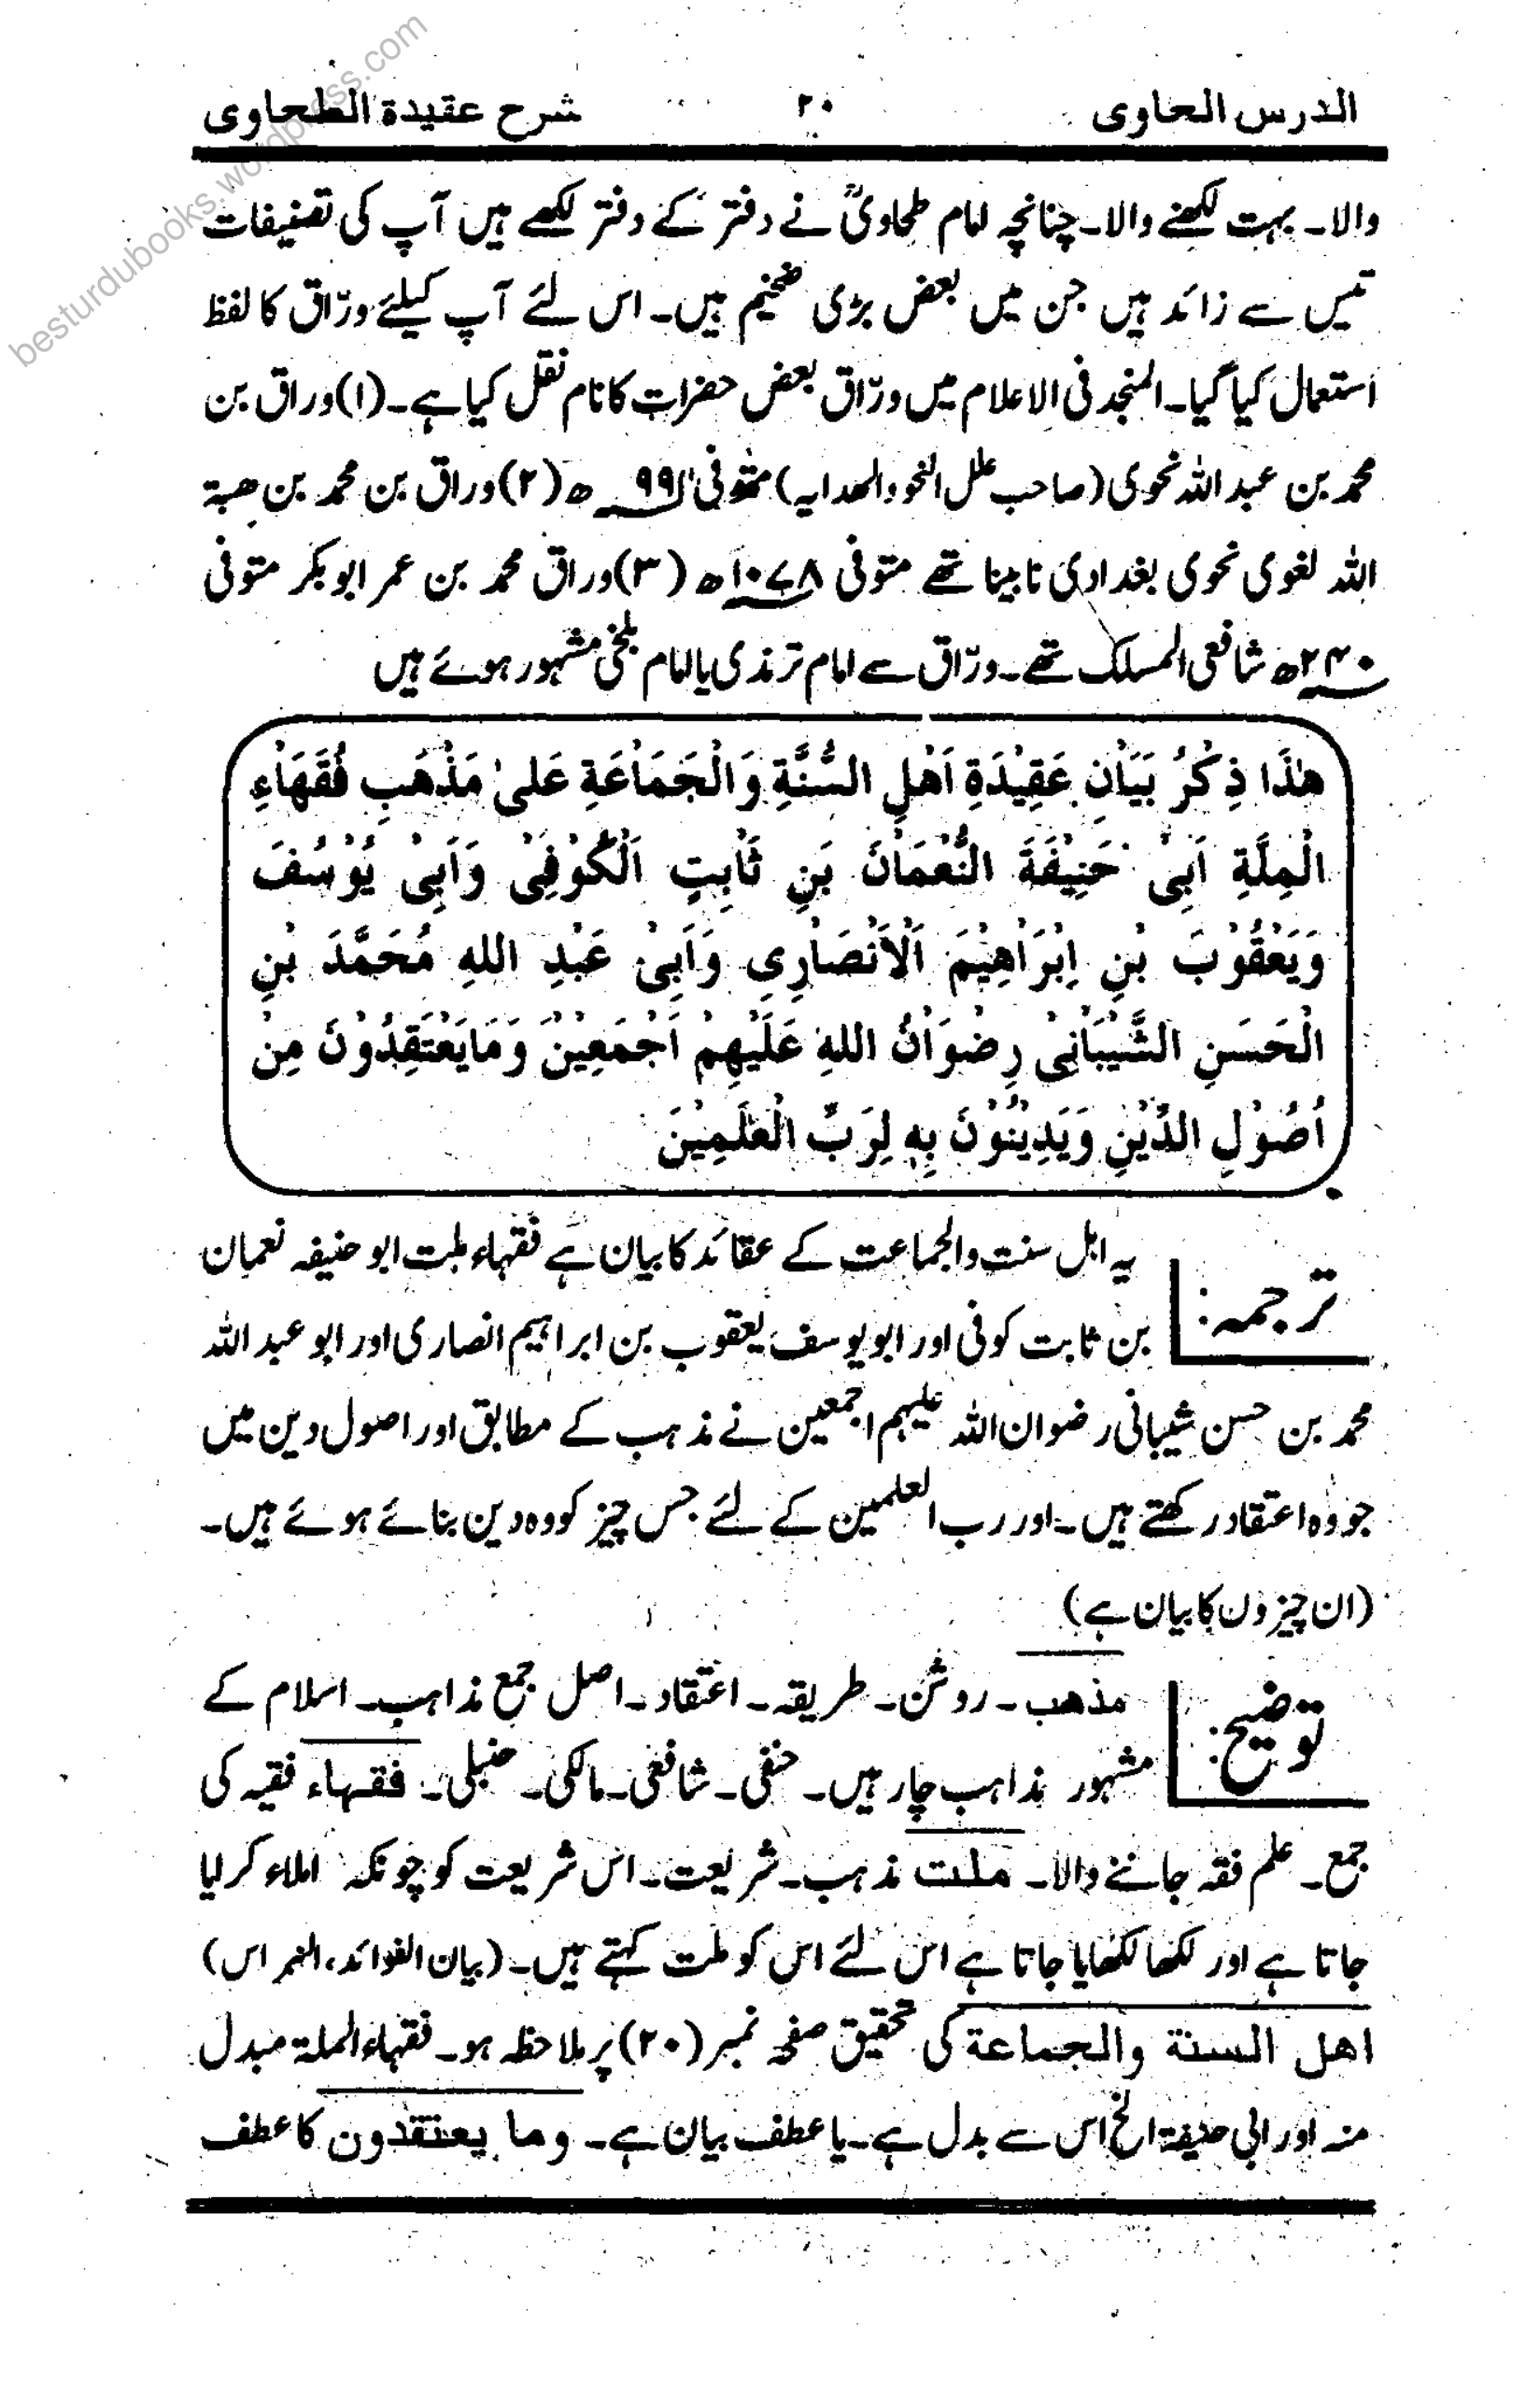 الدرس الحاوی ۲۰ شرح عقیدة الطحاوی
والا۔ بہت لکھنے والا۔ چنانچہ امام طحاویؒ نے دفتر کے دفتر لکھے ہیں آپ کی تصنیفات
تیس سے زائد ہیں جن میں بعض بڑی ضخیم ہیں۔ اس لئے آپ کیلئے ورّاق کا لفظ
استعمال کیا گیا۔ المنجد فی الاعلام میں ورّاق بعض حضرات کا نام نقل کیا ہے۔ (۱) وراق بن
محمد بن عبد اللہ نحوی (صاحب علل النحو والھدایہ) متوفی ھ (۲) وراق بن محمد بن ھبة
اللہ لغوی نحوی بغدادی نابینا تھے متوفی ۱۰۷۸ھ (۳) وراق محمد بن عمر ابوبکر متوفی
۲۴۰ھ شافعی المسلک تھے۔ ورّاق سے امام ترمذی یا امام بلخی مشہور ہوئے ہیں
هٰذَا ذِكْرُ بَيَانِ عَقِيْدَةِ اَهْلِ السُّنَّةِ وَالْجَمَاعَةِ عَلىٰ مَذْهَبِ فُقَهَاءِ
الْمِلَّةِ اَبِىْ حَنِيْفَةَ النُّعْمَانَ بَنِ ثَابِتٍ اَلْكُوْفِىْ وَاَبِىْ يُوْسُفَ
وَيَعْقُوْبَ بْنِ اِبْرَاهِيْمَ اَلْاَنْصَارِى وَاَبِىْ عَبْدِ اللهِ مُحَمَّدَ بْنِ
الْحَسَنِ الشَّيْبَانِىْ رِضْوَانُ اللهِ عَلَيْهِمْ اَجْمَعِيْنَ وَمَايَعْتَقِدُوْنَ مِنْ
اُصُوْلِ الدِّيْنِ وَيَدِيْنُوْنَ بِهٖ لِرَبِّ الْعٰلَمِيْنَ
ترجمہ: یہ اہل سنت والجماعت کے عقائد کا بیان ہے فقہاء ملت ابو حنیفہ نعمان
بن ثابت کوفی اور ابو یوسف یعقوب بن ابراہیم انصاری اور ابو عبد اللہ
محمد بن حسن شیبانی رضوان اللہ علیہم اجمعین نے مذہب کے مطابق اور اصول دین میں
جو وہ اعتقاد رکھتے ہیں۔ اور رب العلمین کے لئے جس چیز کو وہ دین بنائے ہوئے ہیں۔
(ان چیزوں کا بیان ہے)
توضیح: مذھب۔ روش۔ طریقہ۔ اعتقاد۔ اصل جمع مذاہب۔ اسلام کے
مشہور مذاہب چار ہیں۔ حنفی۔ شافعی۔ مالکی۔ حنبلی۔ فقہاء فقیہ کی
جمع۔ علم فقہ جاننے والا۔ ملت مذہب۔ شریعت۔ اس شریعت کو چونکہ املاء کرلیا
جاتا ہے اور لکھا لکھایا جاتا ہے اس لئے اس کو ملت کہتے ہیں۔ (بیان الفوائد، النبراس)
اھل السنة والجماعة کی تحقیق صفحہ نمبر (۲۰) پر ملاحظہ ہو۔ فقہاء الملة مبدل
منہ اور ابی حنیفة الخ اس سے بدل ہے۔ یا عطف بیان ہے۔ وما یعتقدون کا عطف
besturdubooks.wordpress.com